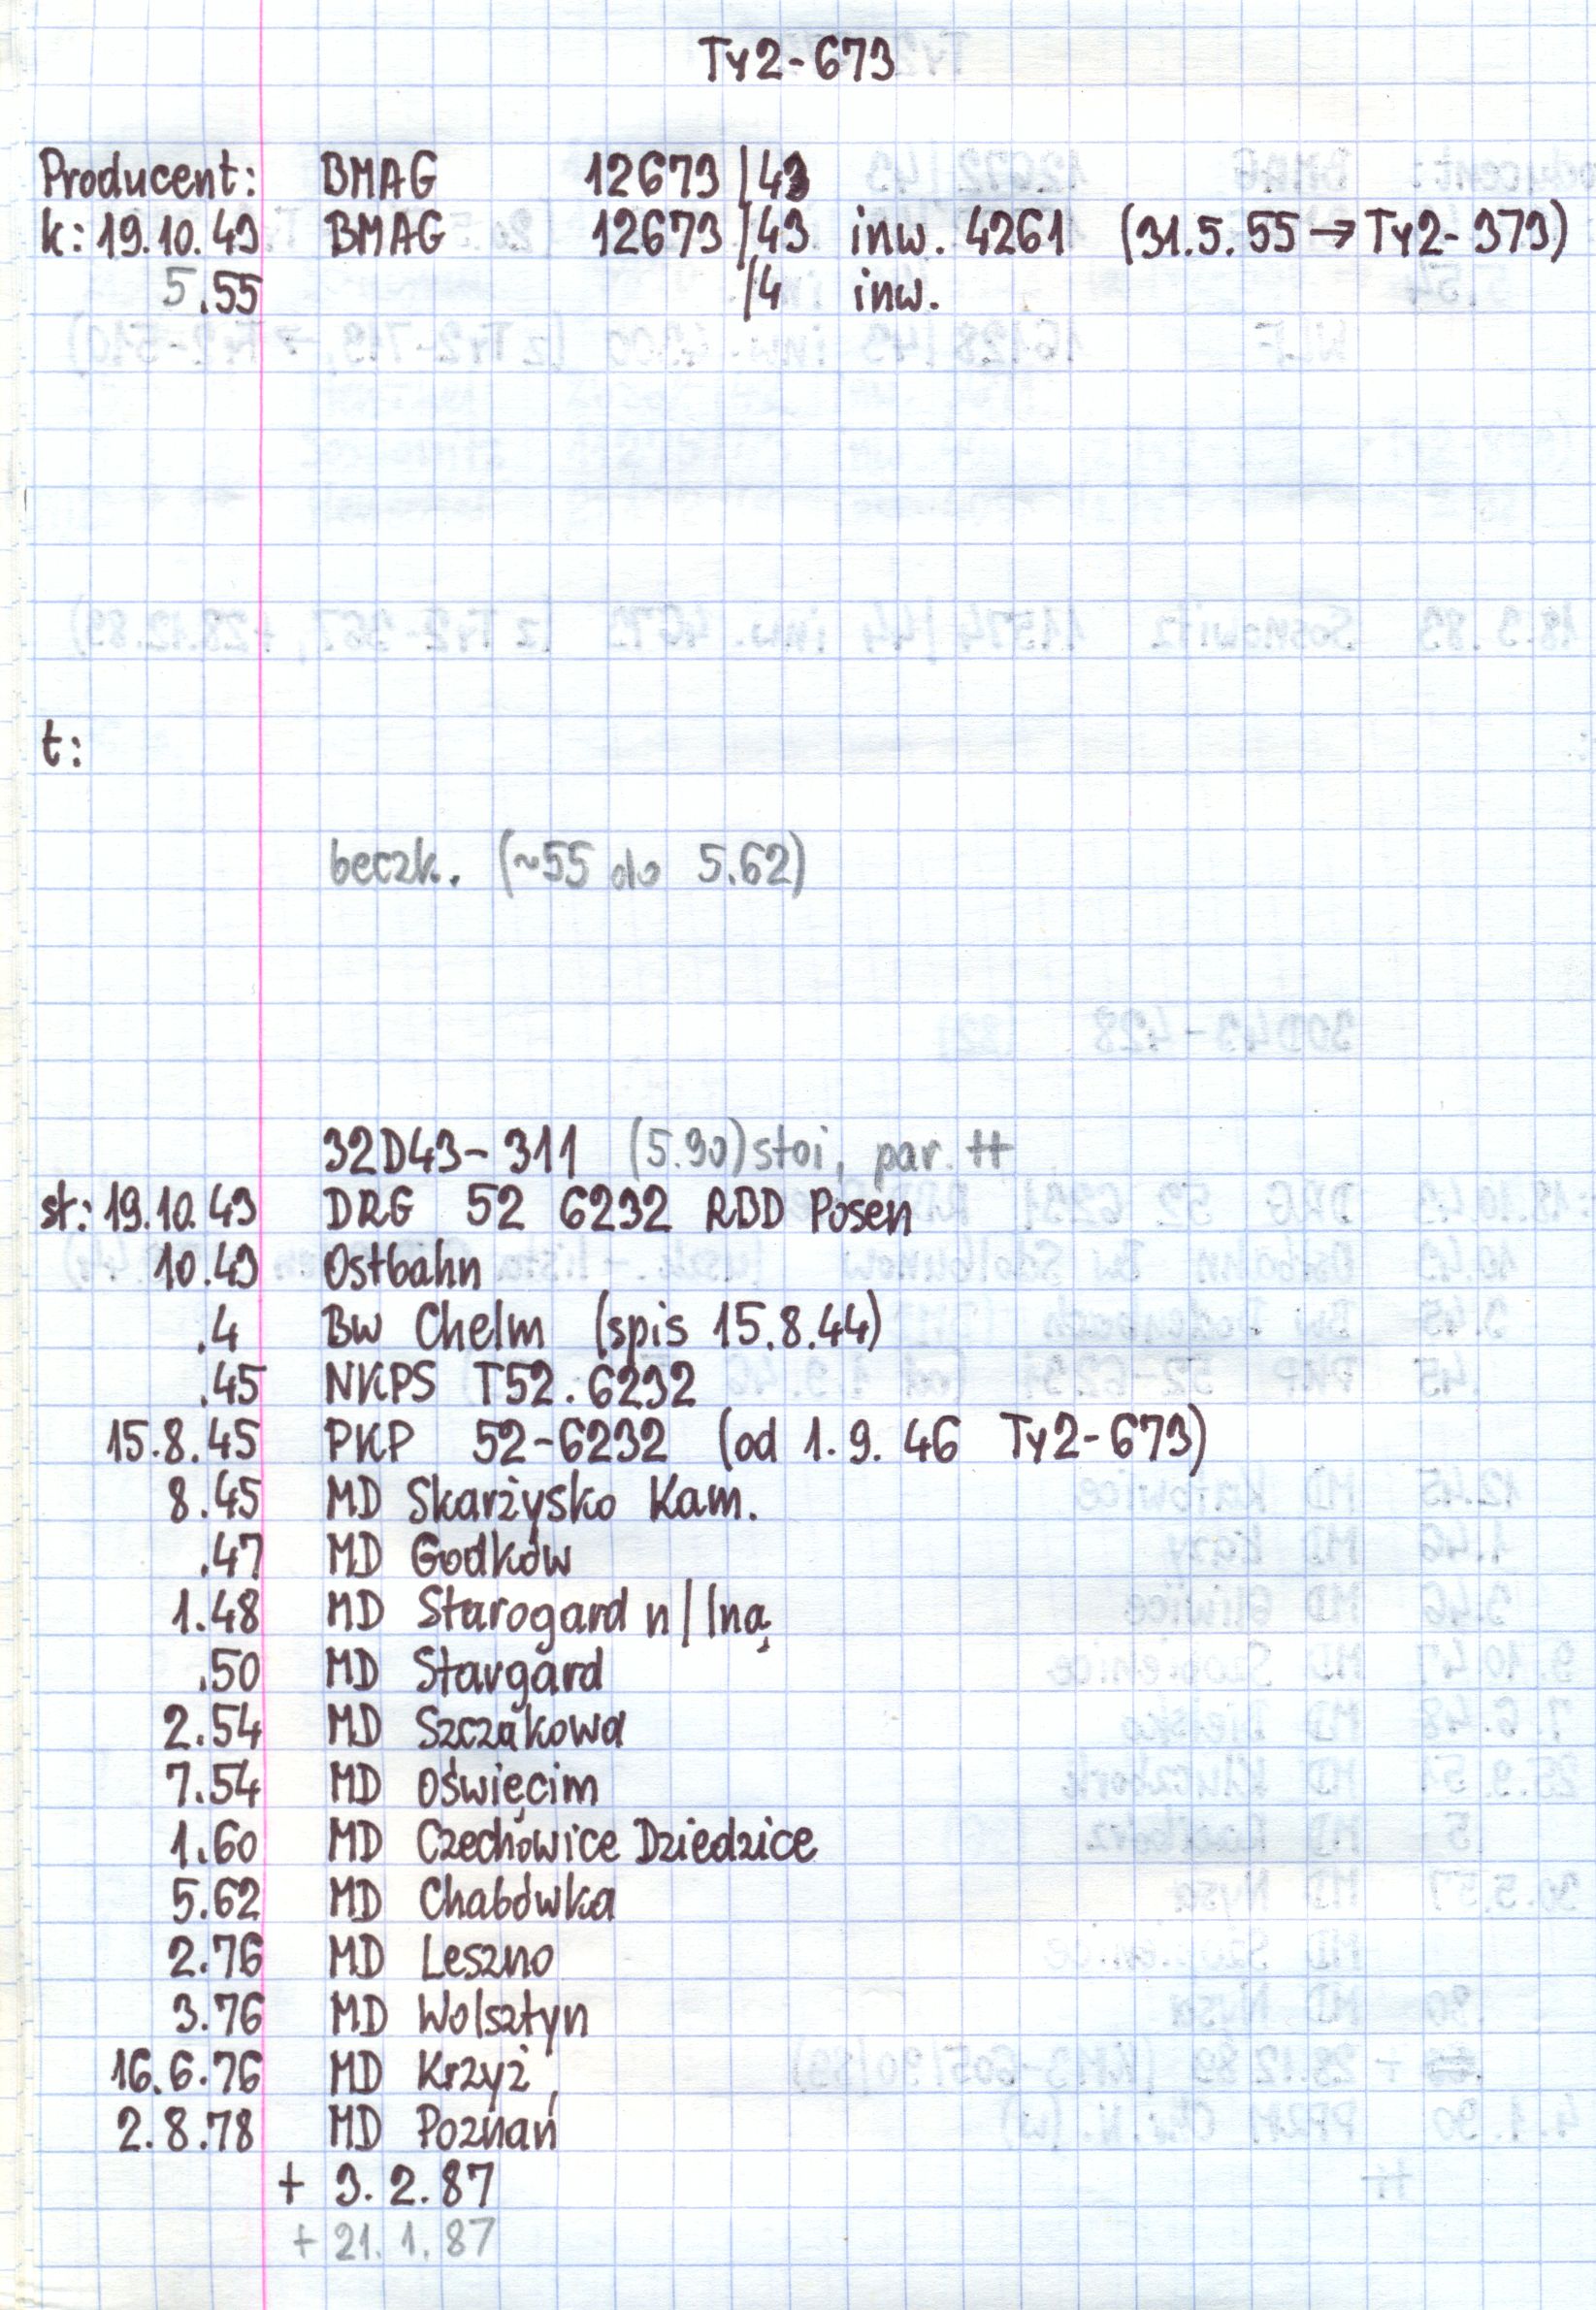 Ty2-673
Producent: BMAG 12673/43
k: 19.10.43 BMAG 12673/43 inw. 4261 (31.5.55 → Ty2-373)
5.55 /4 inw.
t:
beczk. (~55 do 5.62)
32D43-311 (5.90) stoi, par. ++
st: 19.10.43 DRG 52 6232 RBD Posen
10.43 Ostbahn
.4 Bw Chelm (spis 15.8.44)
.45 NKPS T52.6232
15.8.45 PKP 52-6232 (od 1.9.46 Ty2-673)
8.45 MD Skarżysko Kam.
.47 MD Godków
1.48 MD Starogard n/Iną
.50 MD Stargard
2.54 MD Szczakowa
7.54 MD Oświęcim
1.60 MD Czechowice Dziedzice
5.62 MD Chabówka
2.76 MD Leszno
3.76 MD Wolsztyn
16.6.76 MD Krzyż
2.8.78 MD Poznań
+ 3.2.87
+ 21.1.87